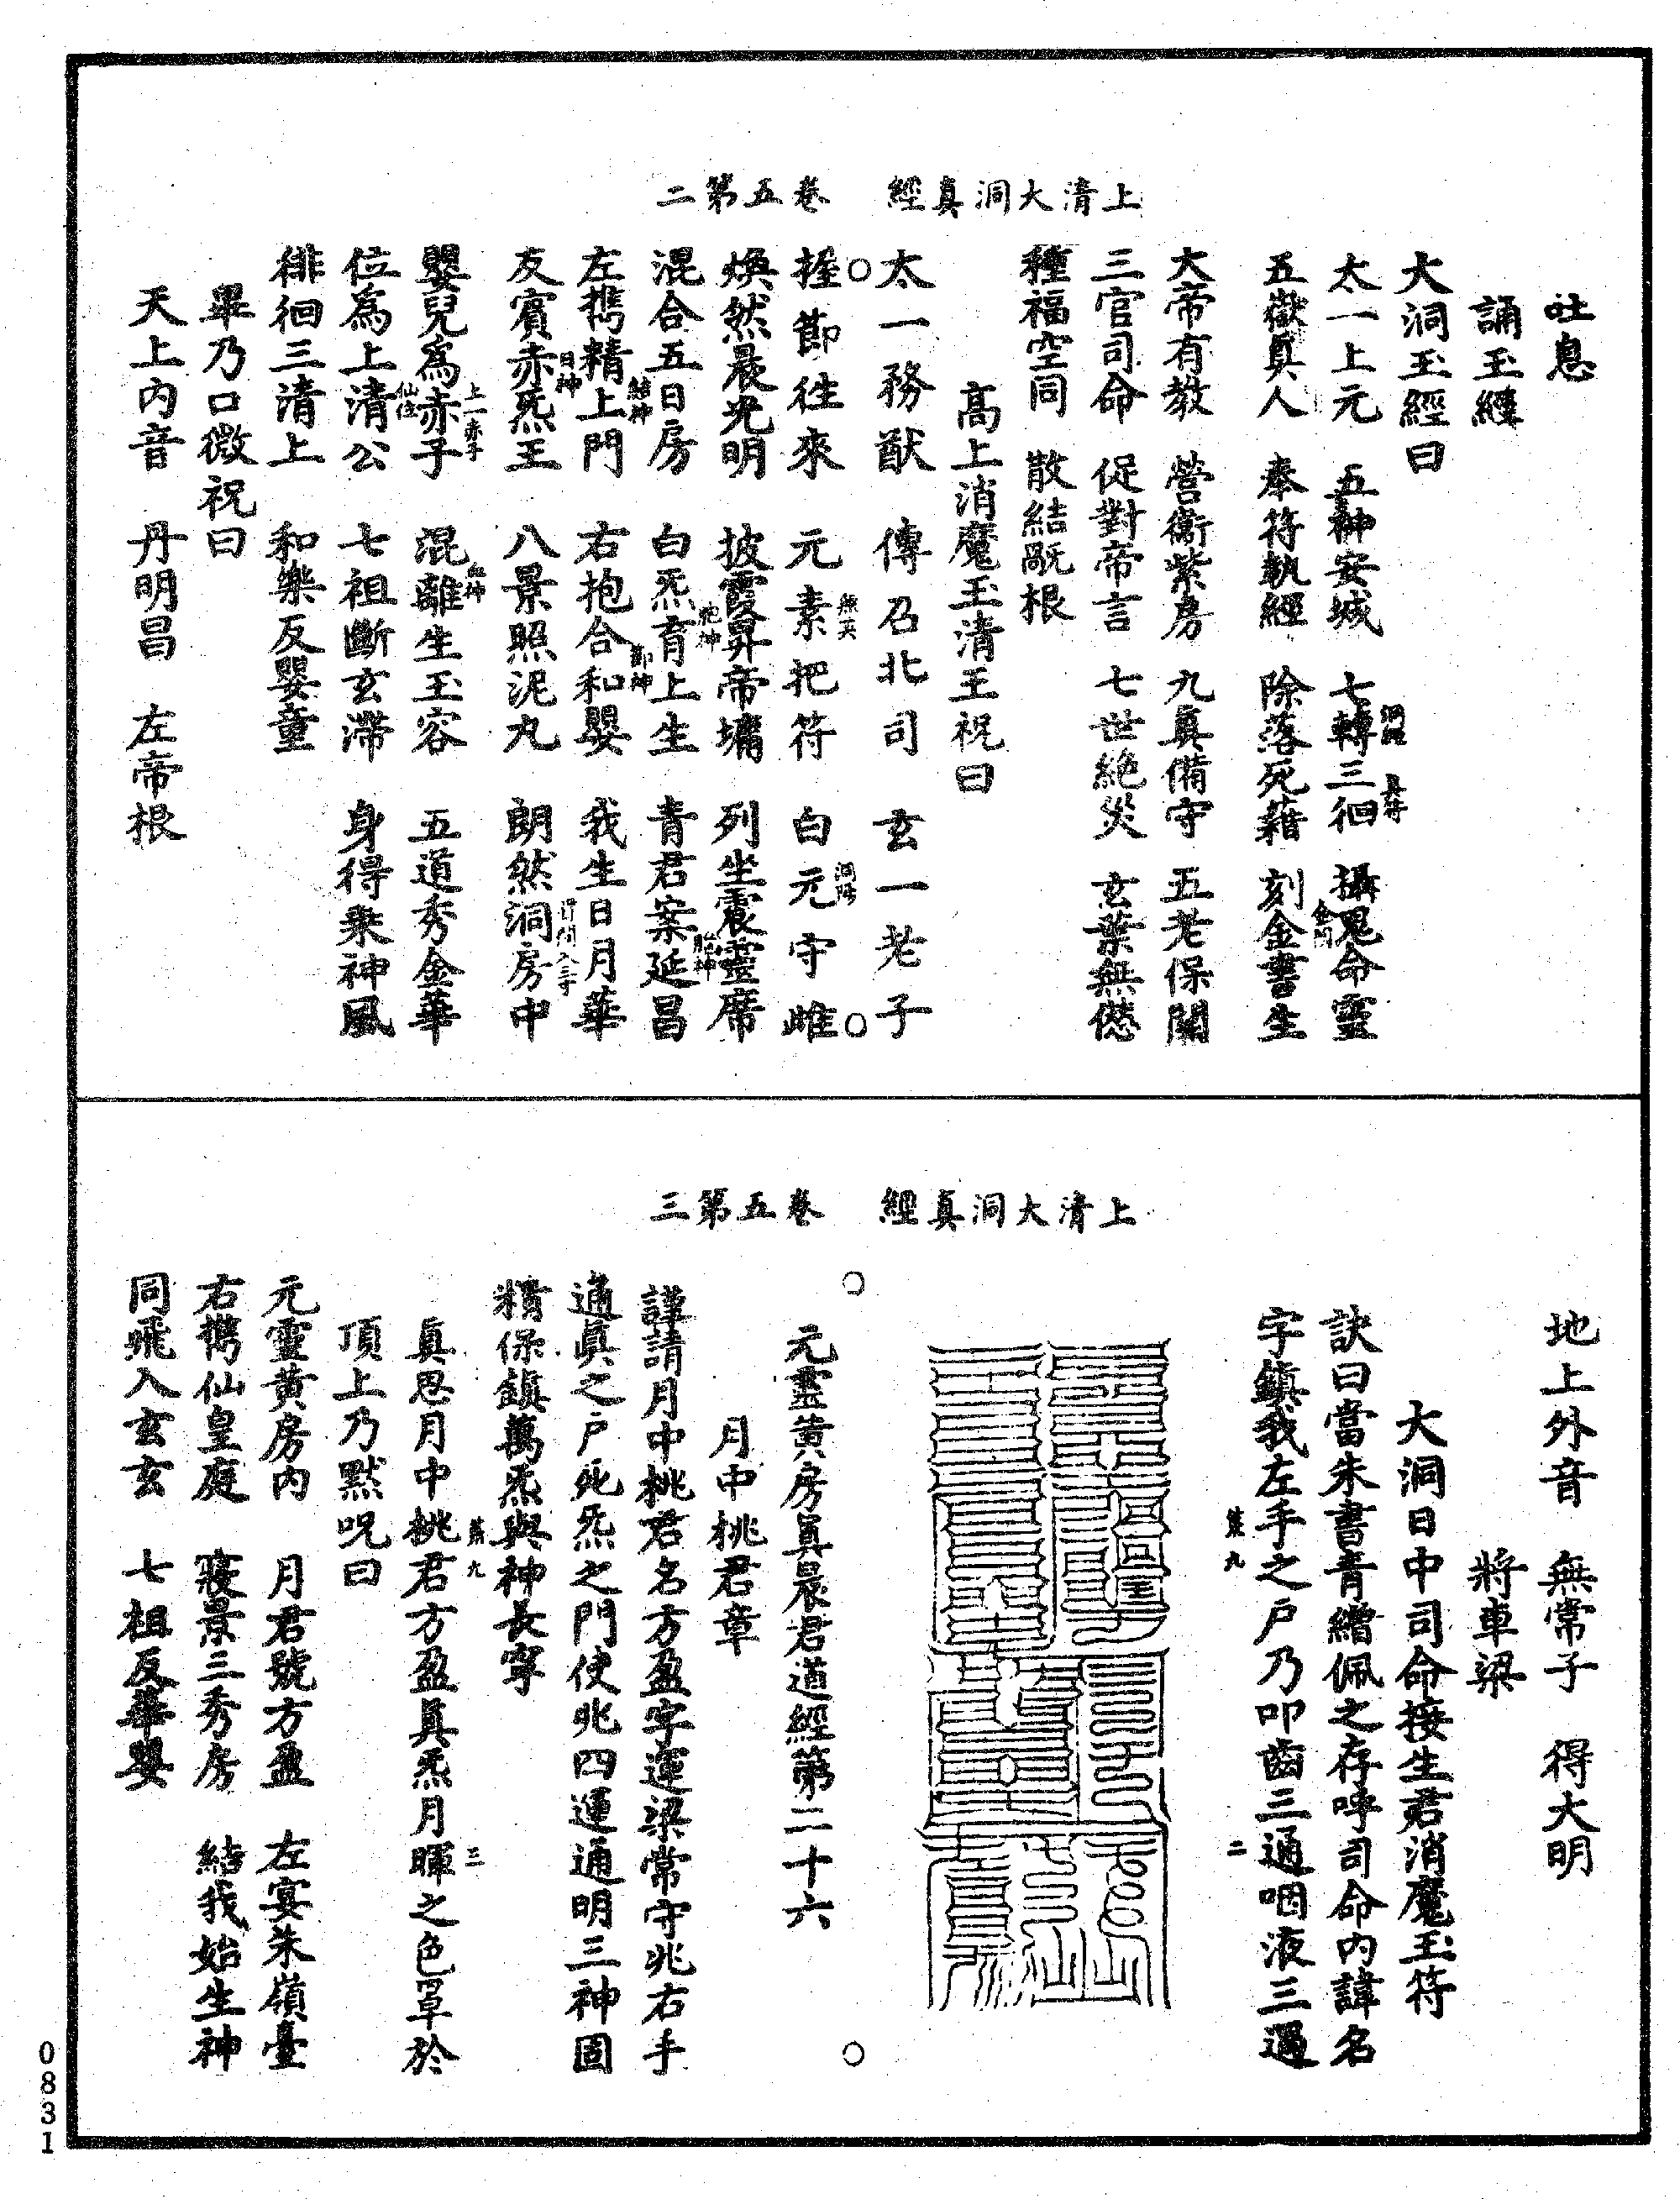 上清大洞真經　卷五第二
吐息
誦玉經
大洞玉經曰
太一上元　五神安城　七轉三徊　攝鬼命靈
五嶽真人　奉符執經　除落死藉　刻金書生
大帝有教　營衛紫房　九真備守　五老保關
三官司命　促對帝言　七世絕災　玄葉無愆
種福空同　散結𣤶根
高上消魔玉清王祝曰
太一務猷　傳召北司　玄一老子
握節往來　元素把符　白元守雌
煥然晨光明　披霞昇帝墉　列坐震靈席
混合五日房　白炁育上生　青君案延昌
左攜精上門　右抱合和嬰　我生日月華
友賓赤炁王　八景照泥丸　朗然洞房中
嬰兒為赤子　混離生玉容　五道秀金華
位為上清公　七祖斷玄滯　身得乘神風
徘徊三清上　和樂反嬰童
畢乃口微祝曰
天上內音　丹明昌　左帝根
上清大洞真經　卷五第三
地上外音　無常子　得大明
將車梁
大洞日中司命接生君消魔玉符
訣曰當朱書青繒佩之存呼司命內諱名
字鎮我左手之戶乃叩齒三通咽液三過
元靈黃房真晨君道經第二十六
月中桃君章
謹請月中桃君名方盈字運梁常守兆右手
通真之戶死炁之門使兆四運通明三神固
精保鎮萬炁與神長寧
真思月中桃君方盈真炁月暉之色罩於
頂上乃默呪曰
元靈黃房內　月君號方盈　左宴朱嶺臺
右攜仙皇庭　寢景三秀房　結我始生神
同飛入玄玄　七祖反華嬰
0831